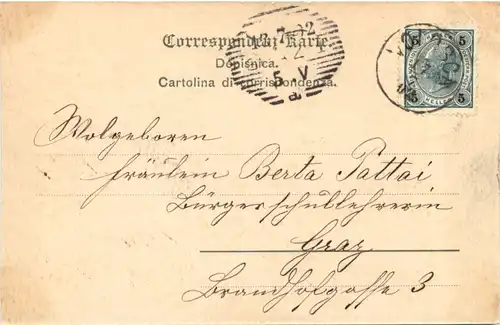 Correspondenz-Karte
Dopisnica.
Cartolina di corrispondenza.
5 5
5 5
HELLER
Wolgeboren
Fräulein Berta Pattai
Bürgerschullehrerin
Graz
Brandhofgasse 3